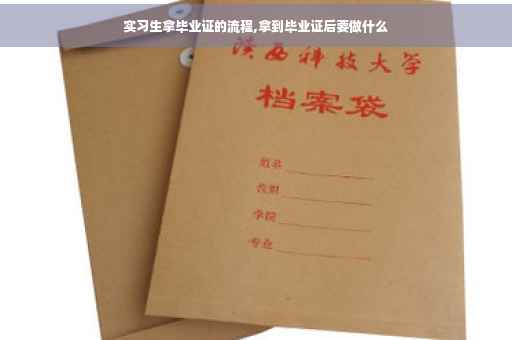 实习生拿毕业证的流程,拿到毕业证后要做什么
陕西科技大学
档案袋
姓名
学院
专业